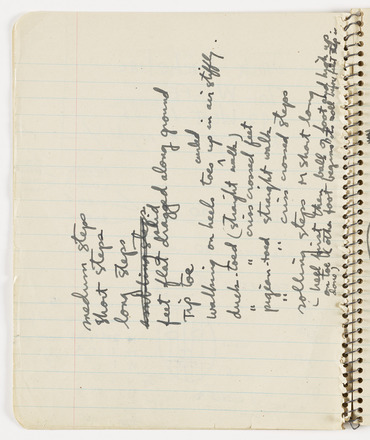 medium steps
short steps
long steps
feet flat dragged along ground
Tip toe
walking on heels toes curled up in air stiffly.
duck-toed (straight walk)
" " criss crossed feet
pigeon toed straight walk
" " criss crossed steps
rolling steps short long
heel first then ball of foot and high up
on toe other foot begins